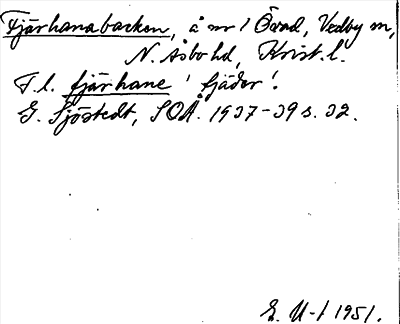 Fjärhanabacken, å nr 1 Örad, Vedby sn,
N. Åsbo hd, Krist. l.
T. l. fjärhane 'fjäder'.
G. Sjöstedt, SOÅ. 1937-39 s. 32.
E. U-t 1951.